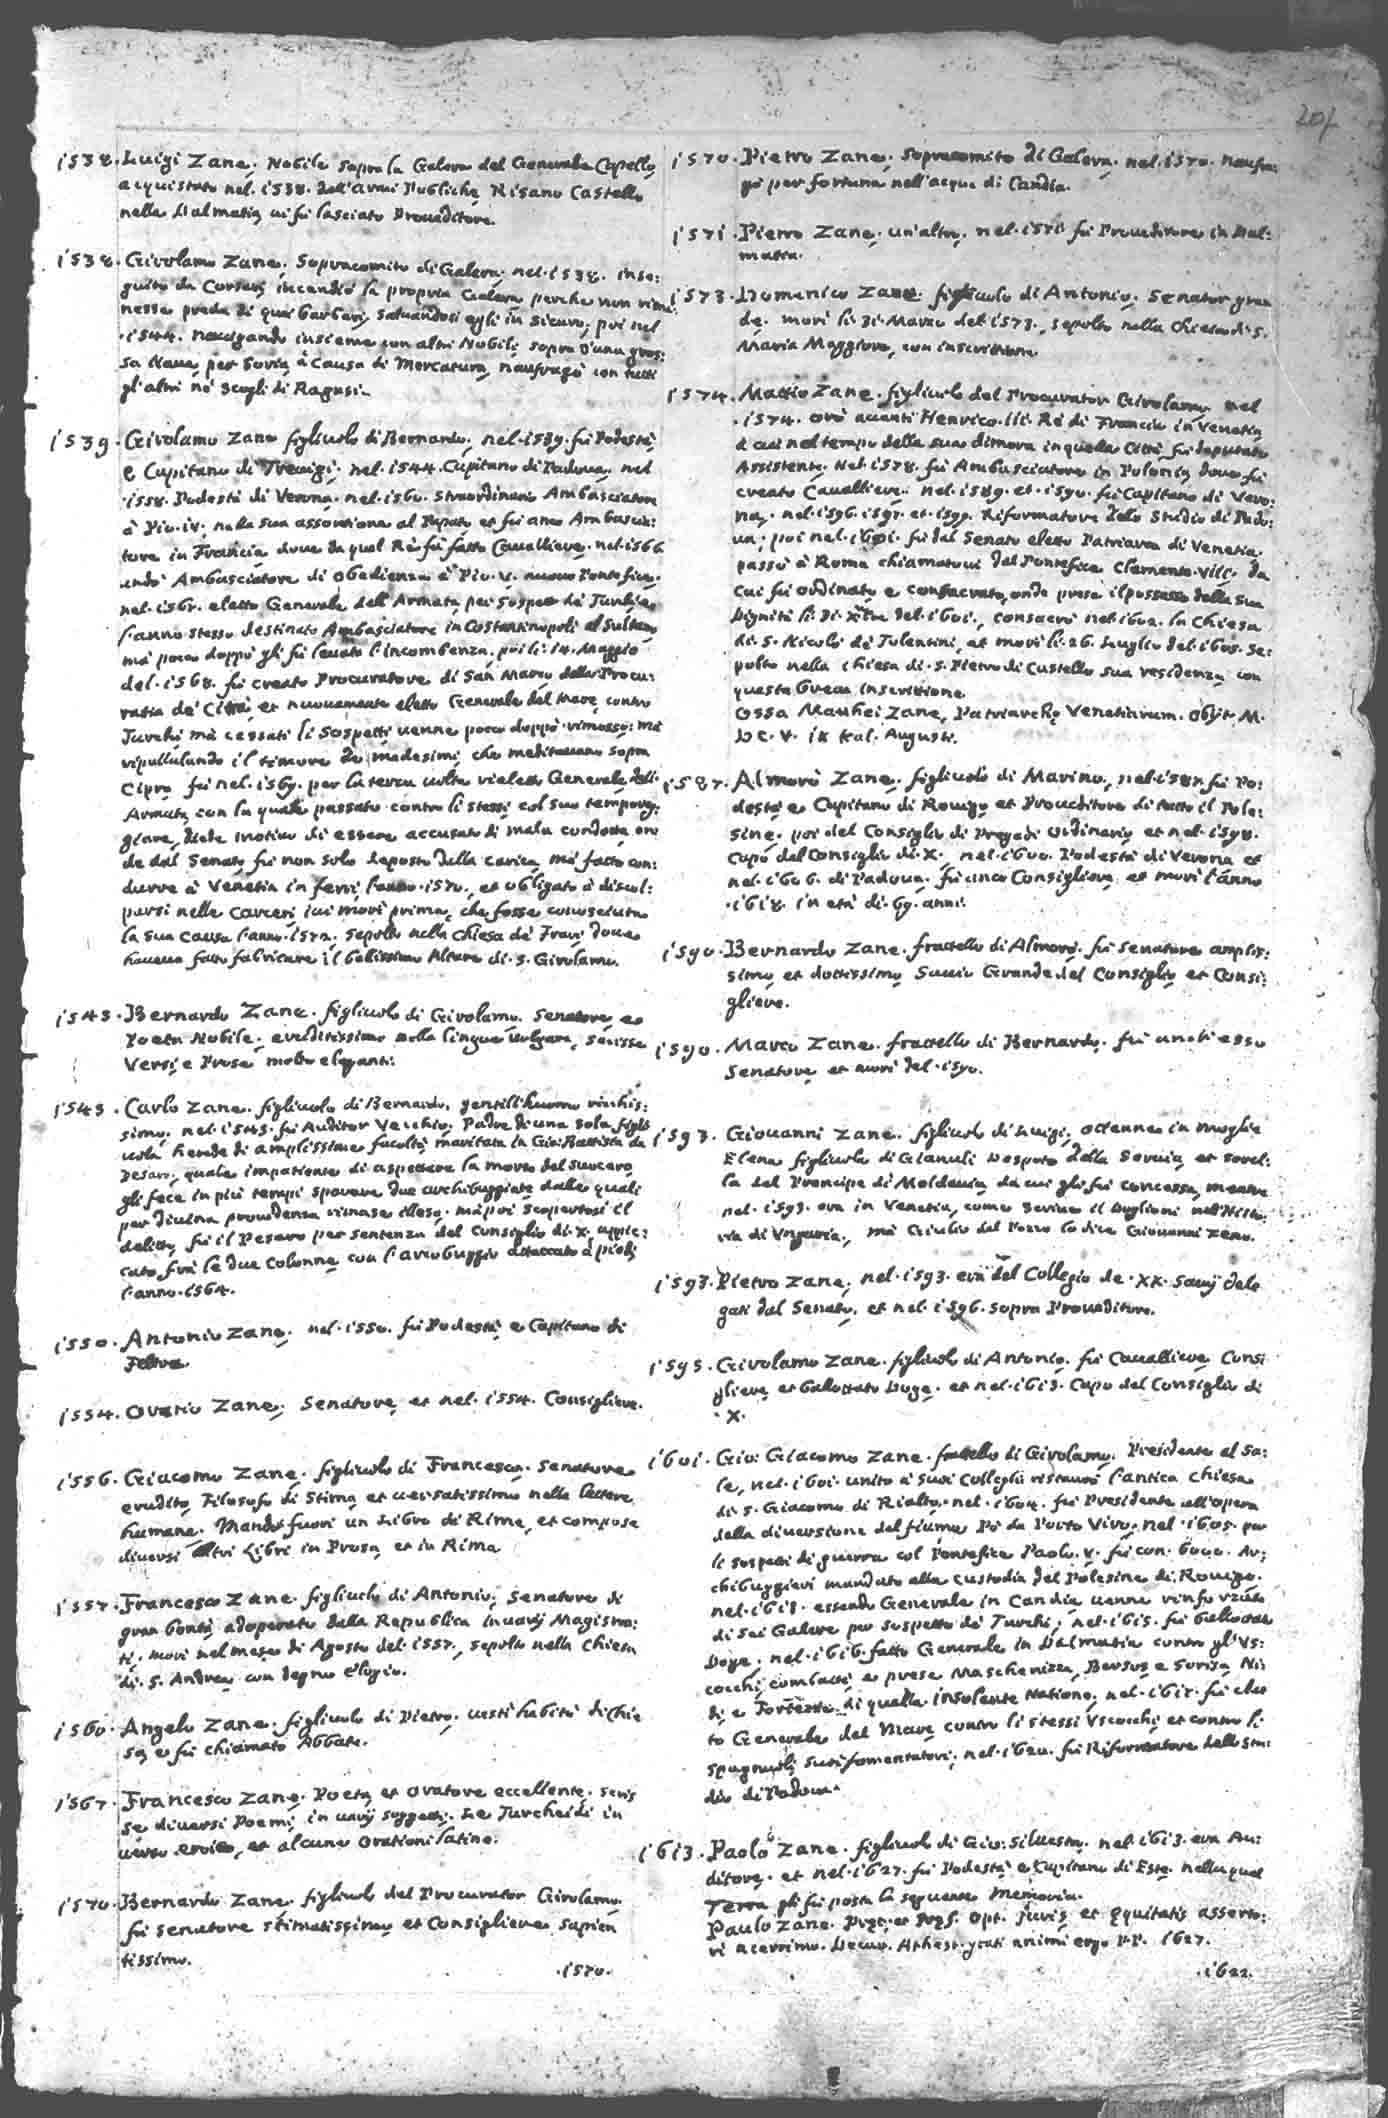 207
1538. Luigi Zane. Nobile sopra la Galera del Generale Capello,
acquistato nel. 1538. dall'armi Publiche Risano Castello
nella Dalmatia, vi fù lasciato Proveditore.
1538. Girolamo Zane. Sopracomito di Galera, nel. 1538. inse:
guito da Corsari incendiò la propria Galera perche non rima:
nesse preda di quei barbari, salvandosi egli in sicuro, poi nel
.1544. navigando insieme con altri Nobili sopra d'una gros:
sa Nave, per Soria, à causa di Mercatura, naufragò con tutti
gl'altri ne' scogli di Ragusi.
1539. Girolamo Zane figliuolo di Bernardo, nel. 1539. fù Podestà,
e Capitano di Trevigi. nel. 1544. Capitano di Padova, nel
.1558. Podestà di Verona, nel. 1560. straordinario Ambasciatore
à Pio. iv. nella sua assontione al Papato, et fù anco Ambascia:
tore in Francia, dove da quel Rè fù fatto Cavalliere. nel. 1566
andò Ambasciatore di obedienza à Pio. v. nuovo Pontefice.
nel. 1567. eletto Generale dell'Armata per sospetto de Turchi, e
l'anno stesso destinato Ambasciatore in Costantinopoli al Sultano
mà poco doppò gli fù levato l'incombenza, poi li. 14. Maggio
del. 1568. fù creato Procuratore di San Marco della Procu:
ratia de Citrà, et nuovamente eletto Generale del Mare, contro
Turchi, mà cessati li sospetti venne poco doppò rimosso: mà
ripullulando il timore de medesimi, che meditavano sopra
Cipro fù nel. 1569. per la terza volta rieletto Generale dell'
Armata, con la quale passato contro li stessi, col suo temporeg:
giare, diede motivo di essere accusato di mala condotta, on
de dal Senato fù non solo deposto dalla carica, mà fatto con:
durre à Venetia in ferri, l'anno. 1570. et obligato à discol:
parsi nelle carceri, ivi morì prima, che fosse conosciuta
la sua causa l'anno. 1572. sepolto nella Chiesa de Frari, dove
haveva fatto fabricare il bellissimo Altare di. S. Girolamo.
1543. Bernardo Zane. figliuolo di Girolamo. Senatore, e
Poeta Nobile. eruditissimo nella lingua Volgare, scrisse
Versi, e Prose molto eleganti.
1543. Carlo Zane. figliuolo di Bernardo, gentilhuomo ricchis:
simo. nel. 1543. fù Auditor Vecchio, Padre di una sola figli
uola herede di amplissime facoltà, maritata in Gio: Battista da
Pesaro, quale impatiente di aspettare la morte del suocero,
gli fece in più tempi sparare due archibuggiate, dalle quali
per divina providenza rimase illeso, mà poi scopertosi il
delitto, fù il Pesaro per sentenza del Consiglio di. X. appic:
cato frà le due Colonne con l'arcobuggio attaccato à piedi
l'anno. 1564.
1550. Antonio Zane. nel. 1550. fù Podestà, e Capitano di
Feltre.
1554. Oratio Zane. Senatore, et nel. 1554. Consigliere.
1556. Giacomo Zane. figliuolo di Francesco. Senatore
erudito, Filosofo di Stima, et versatissimo nelle lettere
humane. Mandò fuori un Libro di Rime, et compose
diversi altri Libri in Prosa, et in Rima
1557. Francesco Zane. figliuolo di Antonio, Senatore di
gran bontà, adoperato dalla Republica in varij Magistra:
ti. morì nel mese di Agosto del. 1557. sepolto nella Chiesa
di. S. Andrea, con degno elogio.
1560. Angelo Zane. figliuolo di Pietro. vestì habito di Chie
sa, e fù chiamato Abbate.
1567. Francesco Zane. Poeta, et Oratore eccellente. scris
se diversi Poemi, in varij soggetti. Le Turcheidi in
verso eroico, et alcune Orationi latine.
1570. Bernardo Zane. figliuolo del Procurator Girolamo.
fù senatore stimatissimo, et Consigliere sapien
tissimo.
.1570.
1570. Pietro Zane. Sopracomito di Galera, nel. 1570. naufra:
gò per fortuna nell'acque di Candia.
1571. Pietro Zane. un'altro. nel. 1571. fù Proveditore in Dal:
matia.
1573. Domenico Zane. figliuolo di Antonio, Senator gran
de. morì li. 31. Marzo del. 1573. sepolto nella Chiesa di. S.
Maria Maggiore, con inscrittione.
1574. Mattio Zane. figliuolo del Procurator Girolamo. nel
.1574. orò avanti Henrico. iii. Rè di Francia in Venetia,
à cui nel tempo della sua dimora in quella Città fù deputato
Assistente. nel. 1578. fù Ambasciatore in Polonia, dove fù
creato Cavalliere. nel. 1589. et. 1590. fù Capitano di Vero:
na. nel. 1596. 1597. et. 1599. Riformatore dello Studio di Pado:
va, poi nel. 1601. fù dal Senato eletto Patriarca di Venetia.
passò à Roma chiamatovi dal Pontefice Clemente. viii. da
cui fù ordinato, e consacrato, onde prese il possesso della sua
Dignità li. 31. Xbre del. 1601. consacrò nel. 1602. la Chiesa
di. S. Nicolò de Tolentini, et morì li. 26. Luglio del. 1605. se:
polto nella Chiesa di. S. Pietro di Castello sua residenza, con
questa breve Inscrittione.
Ossa Matthei Zane, Patriarchę Venetiarum. Obijt. M.
DC. V. IX Kal. Augusti.
1587. Almorò Zane. figliuolo di Marino, nel. 1587. fù Po:
destà e Capitano di Rovigo, et Proveditore di tutto il Pole:
sine, poi del Consiglio di Pregadi ordinario, et nel. 1598.
Capo del Consiglio di. X. nel. 1600. Podestà di Verona, et
nel. 1606. di Padova. fù anco Consigliere, et morì l'anno
.1618. in età di. 69. anni.
1590. Bernardo Zane. fratello di Almorò. fù Senatore amplis:
simo, et dottissimo, Savio Grande del Consiglio, et Consi:
gliere.
1590. Marco Zane. fratello di Bernardo. fù anch'esso
Senatore, et morì del. 1590.
1593. Giovanni Zane. figliuolo di Luigi, ottenne in moglie
Elena figliuola di Gianuli Despoto della Servia, et sorel:
la del Prencipe di Moldavia, da cui gli fù concessa, mentre
nel. 1593. era in Venetia, come scrive il Buglioni nell'Histo:
ria di Vngaria, mà Giulio dal Pozzo lo dice Giovanni Zeno.
1593. Pietro Zane. nel. 1593. era del Collegio de. XX. Savij dele
gati dal Senato, et nel. 1596. sopra Proveditore.
1595. Girolamo Zane. figliuolo di Antonio, fù Cavalliere, Consi
gliere, et ballottato Doge. et nel. 1613. Capo del Consiglio di
.X.
1601. Gio: Giacomo Zane. fratello di Girolamo. Presidente al Sa:
le, nel. 1601. unito à suoi Colleghi ristaurò l'antica Chiesa
di. S. Giacomo di Rialto. nel. 1604. fù Presidente all'opera
della diversione del fiume Pò da Porto Viro. nel. 1605. per
li sospetti di guerra col Pontefice Paolo. v. fù con. 6000. Ar:
chibuggieri mandato alla custodia del Polesine di Rovigo.
nel. 1613. essendo Generale in Candia venne rinforzato
di sei Galere per sospetto de Turchi; nel. 1615. fù ballottato
Doge. nel. 1616. fatto Generale in Dalmatia contro gl'Vs:
cocchi, combattè, e prese Maschenizza, Bersus, e Sorisa, Ni:
di, e Fortezze di quella insolente Natione, nel. 1617. fù elet
to Generale del Mare, contro li stessi Vscocchi, et contro li
Spagnuoli suoi fomentatori, nel. 1620. fù Riformatore dello Stu:
dio di Padova.
1613. Paolo Zane. figliuolo di Gio: Silvestro. nel. 1613. era Au:
ditore. et nel. 1627. fù Podestà, e Capitano di Este, nella qual
Terra gli fù posta la seguente memoria.
Paulo Zane. Pręt. et Pręf. Opt. juris, et ęquitatis asserto:
ri acerrimo. Decur. Athest. grati animi ergo P.P. 1627.
.1622.